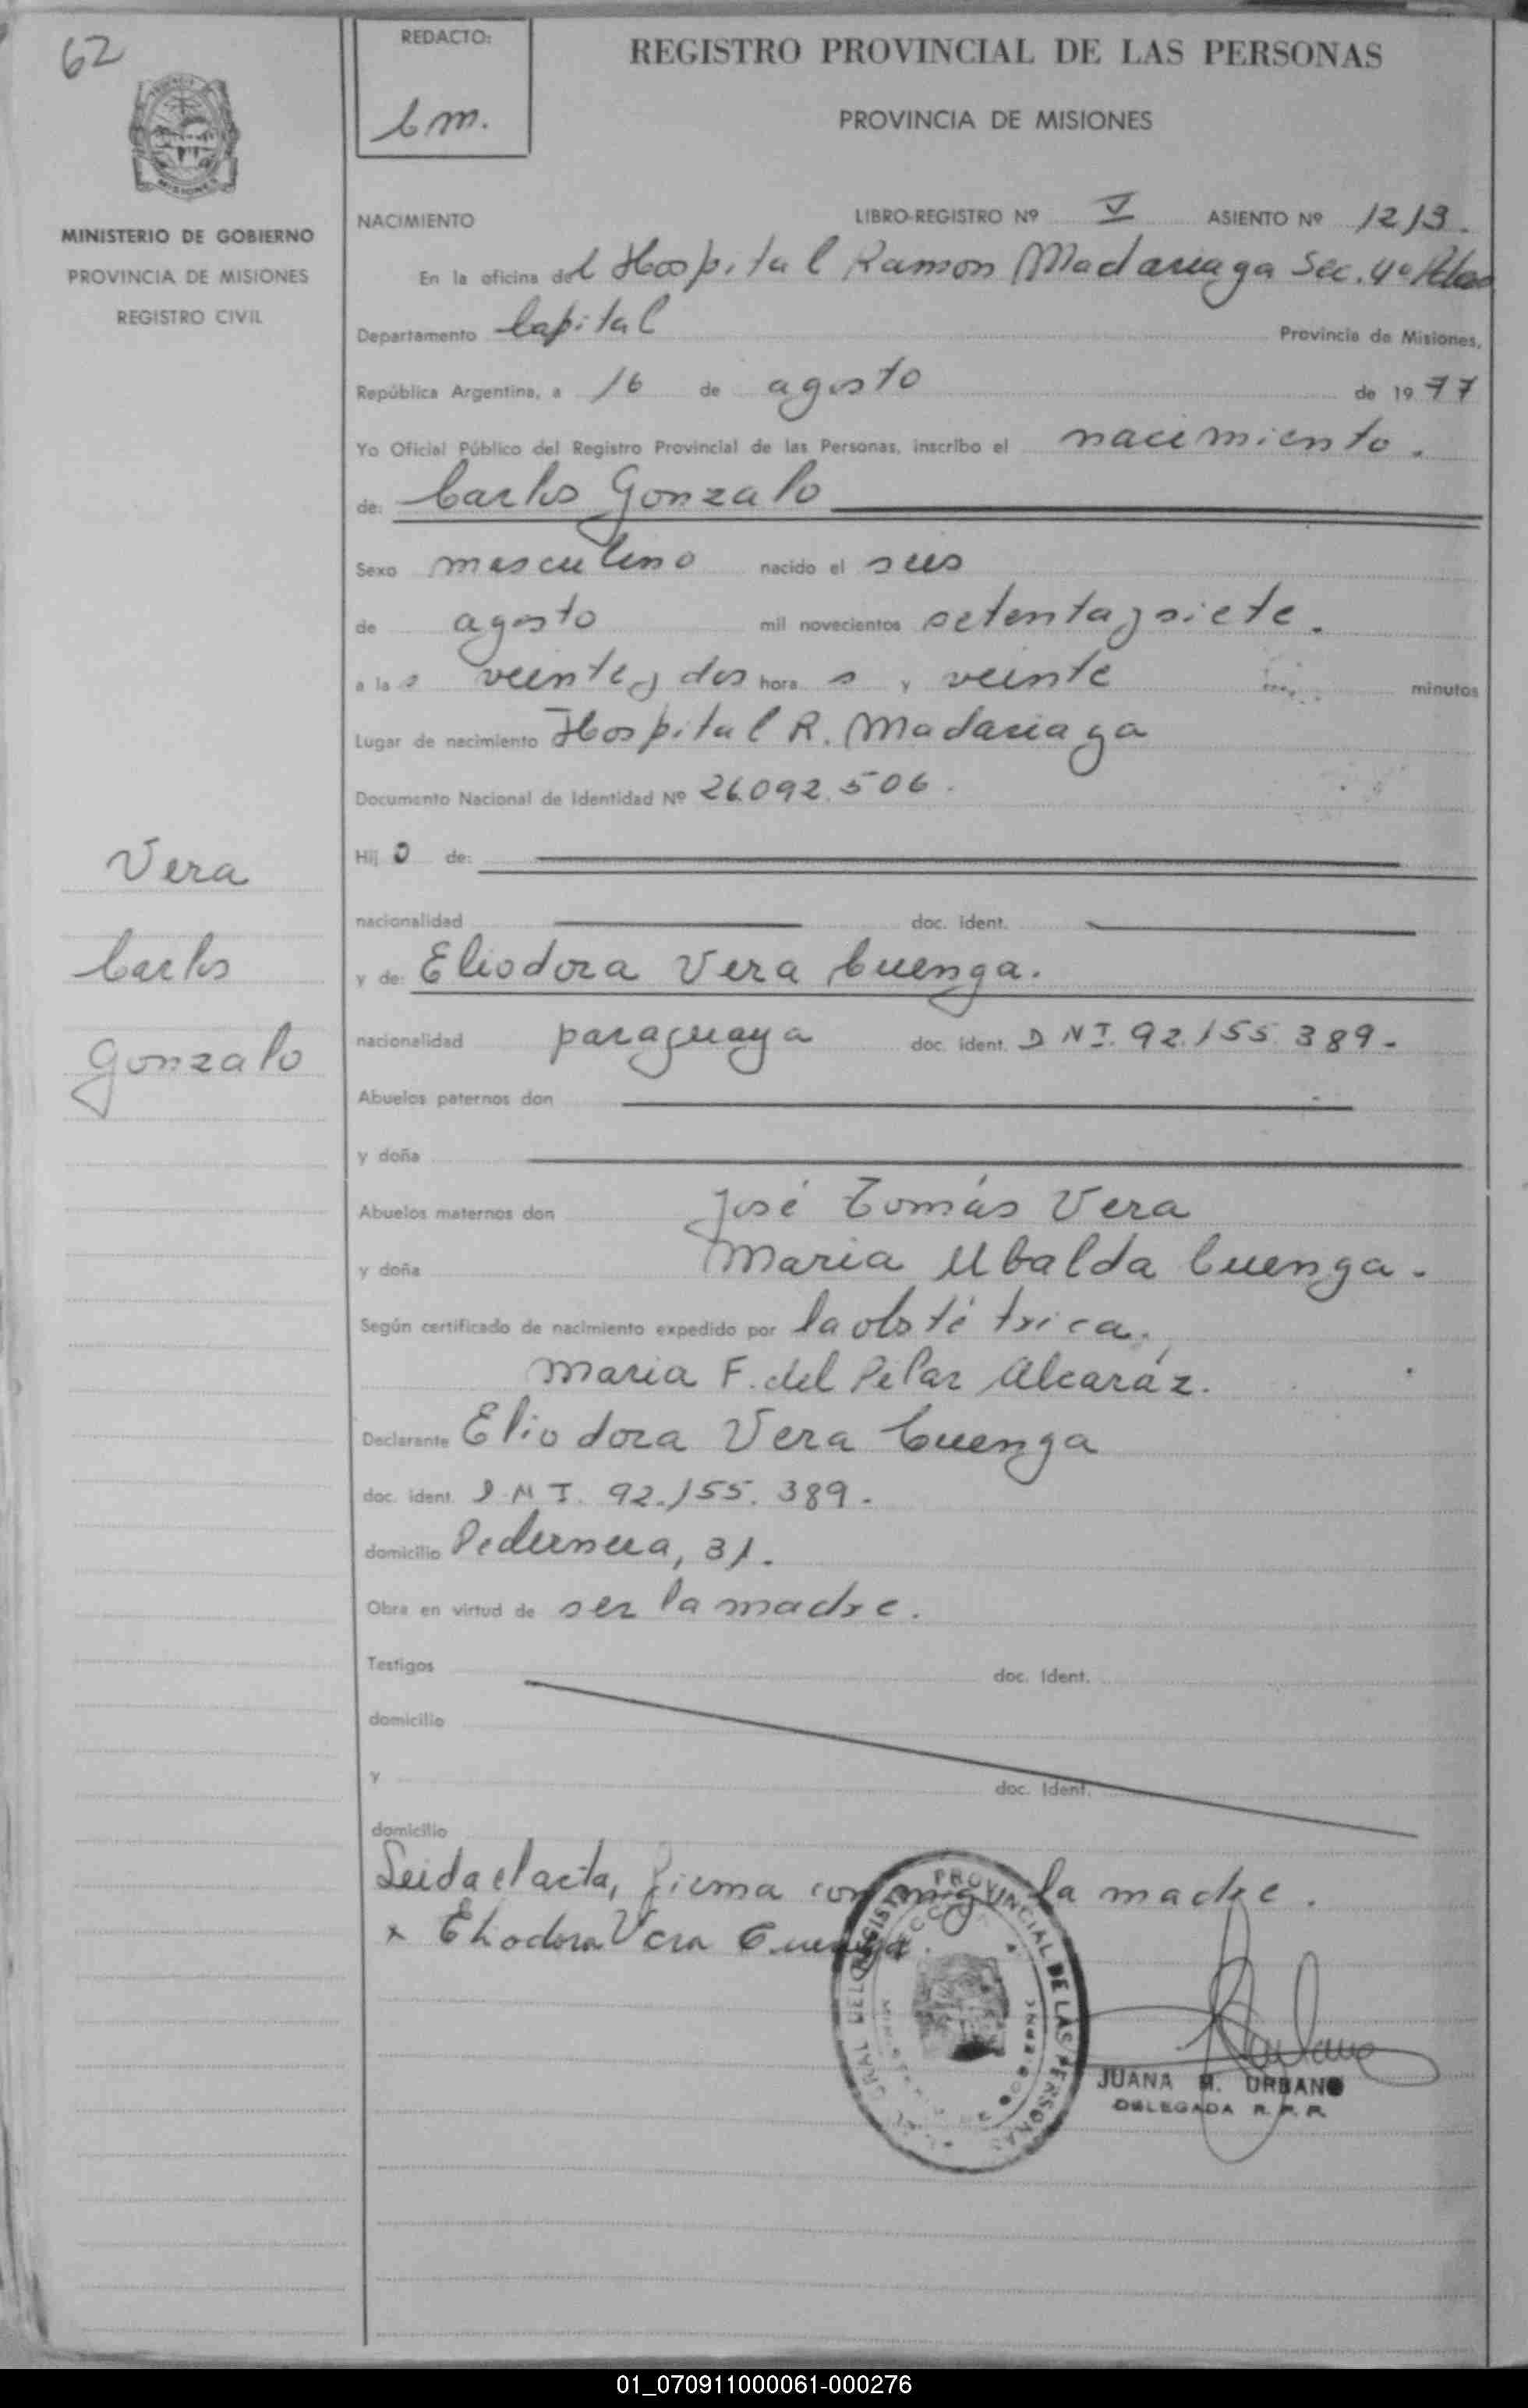 62
REDACTO:
C.m.
REGISTRO PROVINCIAL DE LAS PERSONAS
PROVINCIA DE MISIONES
MISIONES
MINISTERIO DE GOBIERNO
PROVINCIA DE MISIONES
REGISTRO CIVIL
NACIMIENTO
LIBRO-REGISTRO Nº V ASIENTO Nº 1213.
En la oficina del Hospital Ramon Madariaga Sec. 4º
Departamento Capital Provincia de Misiones,
República Argentina, a 16 de agosto de 1977
Yo Oficial Público del Registro Provincial de las Personas, inscribo el nacimiento.
de: Carlos Gonzalo
Sexo masculino nacido el seis
de agosto mil novecientos setenta y siete.
a las veinte y dos horas y veinte minutos
Lugar de nacimiento Hospital R. Madariaga
Documento Nacional de Identidad Nº 26.092.506.
Hijo de:
nacionalidad doc. ident.
y de: Eliodora Vera Cuenga.
nacionalidad paraguaya doc. ident. DNI. 92.155.389.-
Abuelos paternos don
y doña
Abuelos maternos don José Tomás Vera
y doña Maria Ubalda Cuenga.
Según certificado de nacimiento expedido por la obstétrica,
Maria F. del Pilar Alcaráz.
Declarante Eliodora Vera Cuenga
doc. ident. D.N.I. 92.155.389.
domicilio Pedernera, 31.
Obra en virtud de ser la madre.
Testigos doc. Ident.
domicilio
y doc. Ident.
domicilio
Leida el acta, firma conmigo la madre.
x Eliodora Vera Cuenga.
Vera
Carlos
Gonzalo
PROVINCIAL DE LAS PERSONAS
JUANA M. URBANO
DELEGADA R.P.P.
01_070911000061-000276